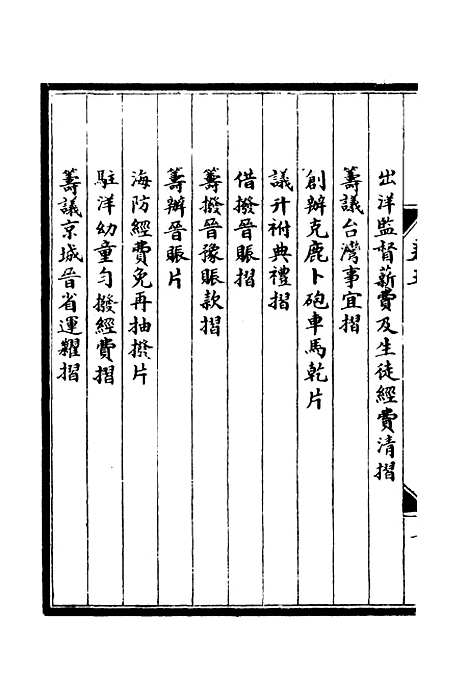 出洋監督薪費及生徒經費清摺
籌議台灣事宜摺
創辦克鹿卜砲車馬乾片
議升祔典禮摺
借撥晉賑摺
籌撥晉豫賑款摺
籌辦晉賑片
海防經費免再抽撥片
駐洋幼童勻撥經費摺
籌議京城晉省運糶摺